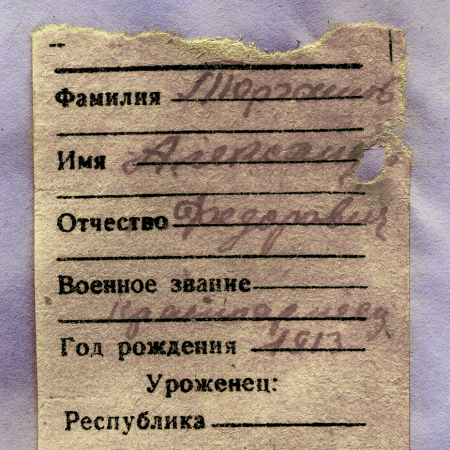 Фамилия
Имя Александр
Отчество Федорович
Военное звание
красноармеец
Год рождения 1913
Уроженец:
Республика